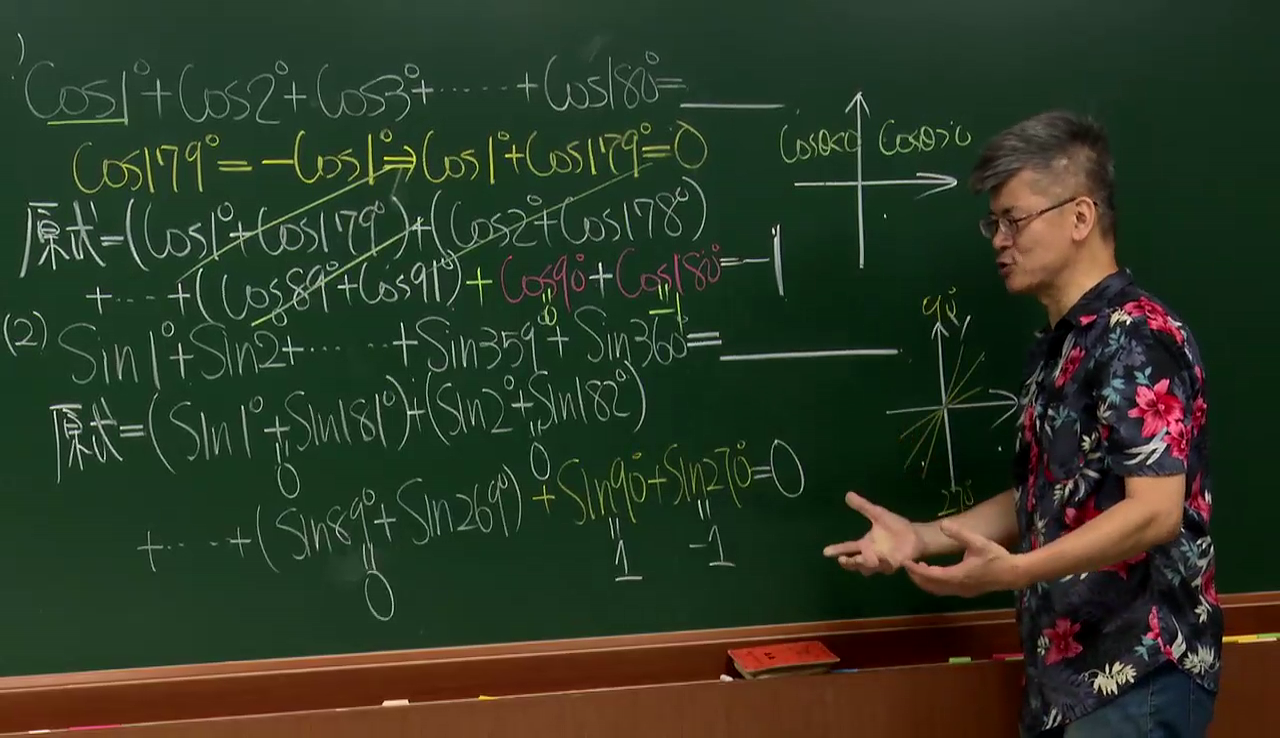 ) Cos1°+Cos2°+Cos3°+……+Cos180°=____
Cos179°=-Cos1°⇒Cos1°+Cos179°=0
原式=(Cos1°+Cos179°)+(Cos2°+Cos178°)
+……+(Cos89°+Cos91°)+Cos90°+Cos180°=-1
0 -1
(2) Sin1°+Sin2°+……+Sin359°+Sin360°=____
原式=(Sin1°+Sin181°)+(Sin2°+Sin182°)
0 0
+……+(Sin89°+Sin269°)+Sin90°+Sin270°=0
0 1 -1
Cosθ<0 Cosθ>0
90°
270°